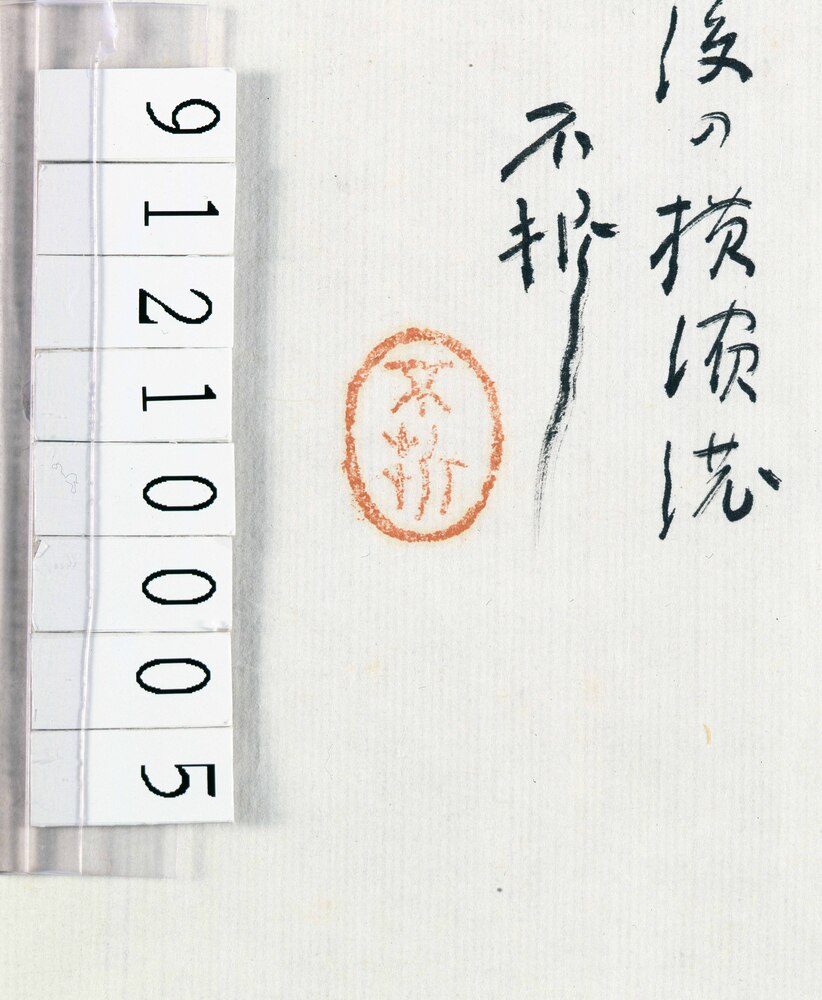 後の横濱港
不折
不折
91210005